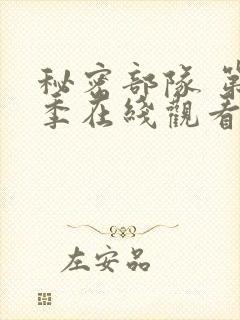 秘密部隊 第
季在綫觀看
左安品